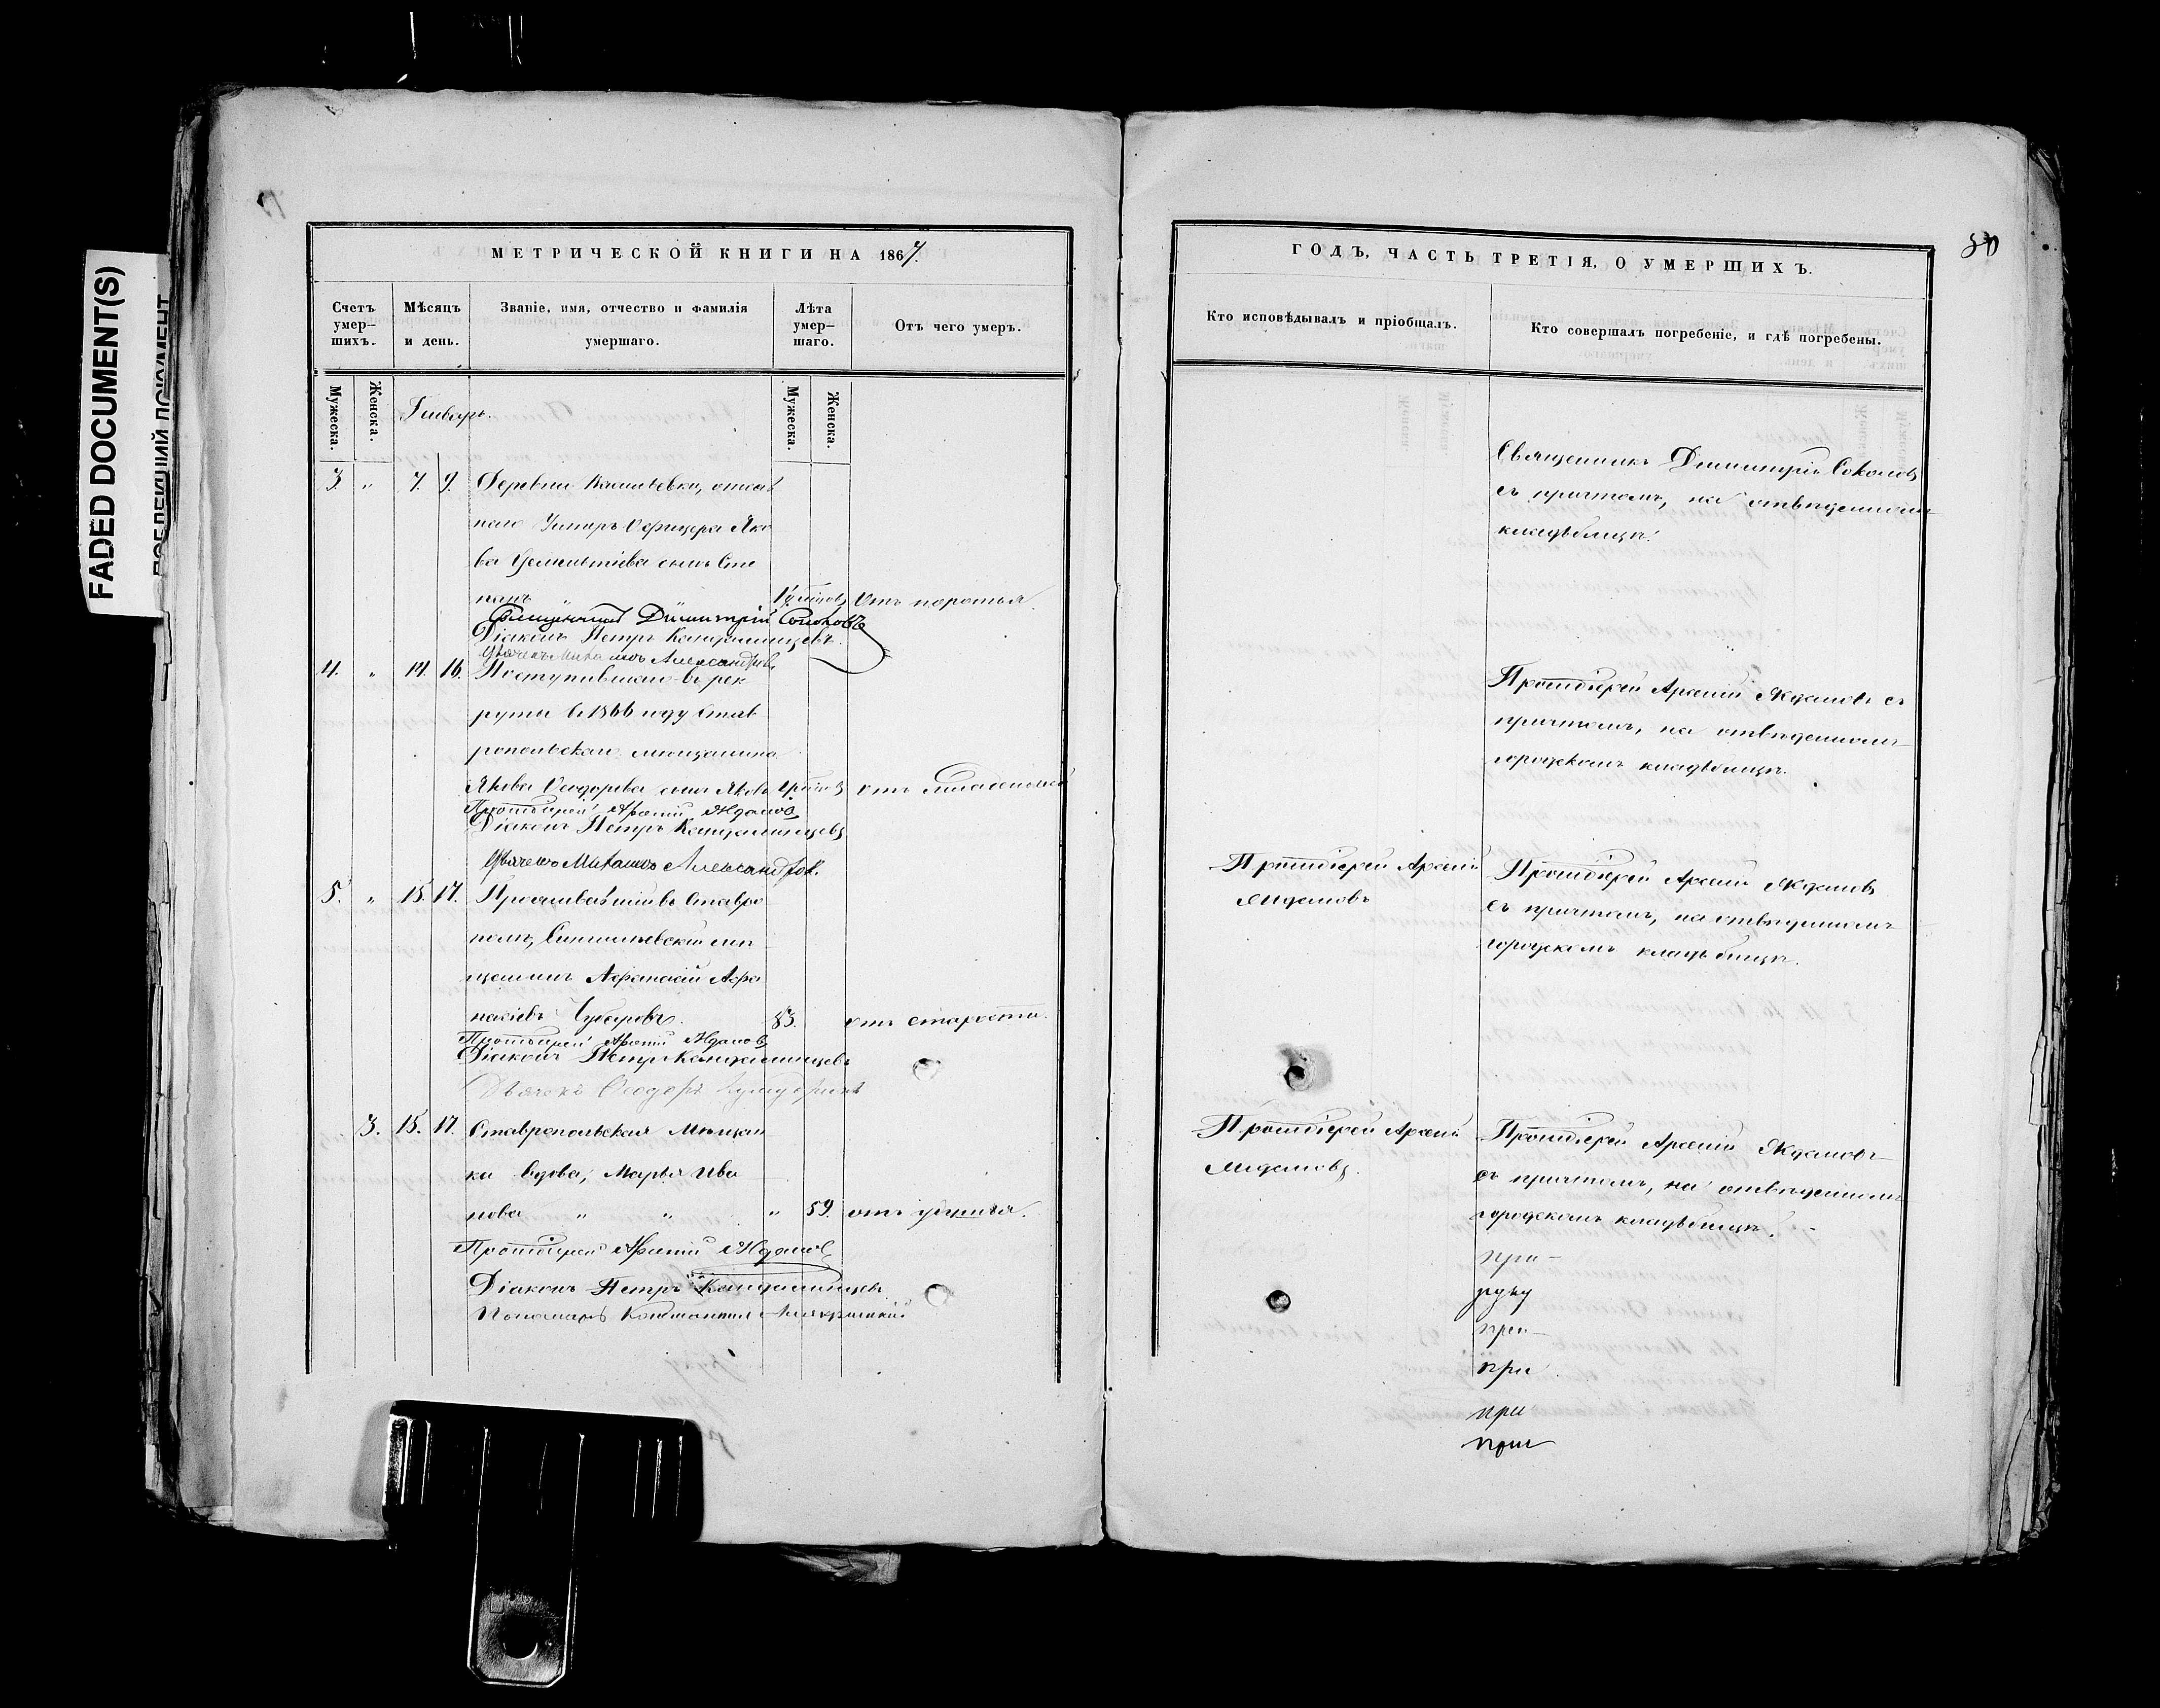 FADED DOCUMENT(S)
МЕТРИЧЕСКОЙ КНИГИ НА 1867.
Счетъ умер-шихъ.
Мѣсяцъ и день.
Званіе, имя, отчество и фамилія умершаго.
Лѣта умер-шаго.
Отъ чего умеръ.
Мужеска.
Женска.
Мужеска.
Женска.
Январь.
3. " 7. 9. Деревни
наго Унтеръ Офицера Яко
ва сынъ Сте
панъ
Священникъ Димитрій Соколовъ
Діаконъ Петръ Кандалинцевъ.
Дьячекъ Михаилъ Александровъ
4. " 14. 16. Поступившаго въ рек
руты въ 1866 году Став
ропольскаго мѣщанина
Якова Ѳеодорова сынъ Яковъ
Протоіерей Арсеній Ждановъ
Діаконъ Петръ Кандалинцевъ
Дьячекъ Михаилъ Александровъ.
5. " 15. 17. Проживавшій въ Ставро
полѣ, мѣ
щанинъ Аѳанасій Аѳа
насіевъ 83. отъ старости.
Протоіерей Арсеній Ждановъ
Діаконъ Петръ Кандалинцевъ
Дьячекъ Ѳеодоръ
3. 15. 17. Ставропольская мѣщан
ка вдова, Марья Ива
нова " " " 59. отъ удушья.
Протоіерей Арсеній Ждановъ
Діаконъ Петръ Кандалинцевъ
Пономарь Константинъ
ГОДЪ, ЧАСТЬ ТРЕТІЯ, О УМЕРШИХЪ.
30
Кто исповѣдывалъ и пріобщалъ.
Кто совершалъ погребеніе, и гдѣ погребены.
Священникъ Димитрій Соколовъ
съ причтомъ, на отведенномъ
кладбищѣ.
Протоіерей Арсеній Ждановъ съ
причтомъ, на отведенномъ
городскомъ кладбищѣ.
Протоіерей Арсеній
Ждановъ
Протоіерей Арсеній Ждановъ
съ причтомъ, на отведенномъ
городскомъ кладбищѣ.
Протоіерей Арсеній
Ждановъ.
Протоіерей Арсеній Ждановъ
съ причтомъ, на отведенномъ
городскомъ кладбищѣ.
при
руку
при
при
при